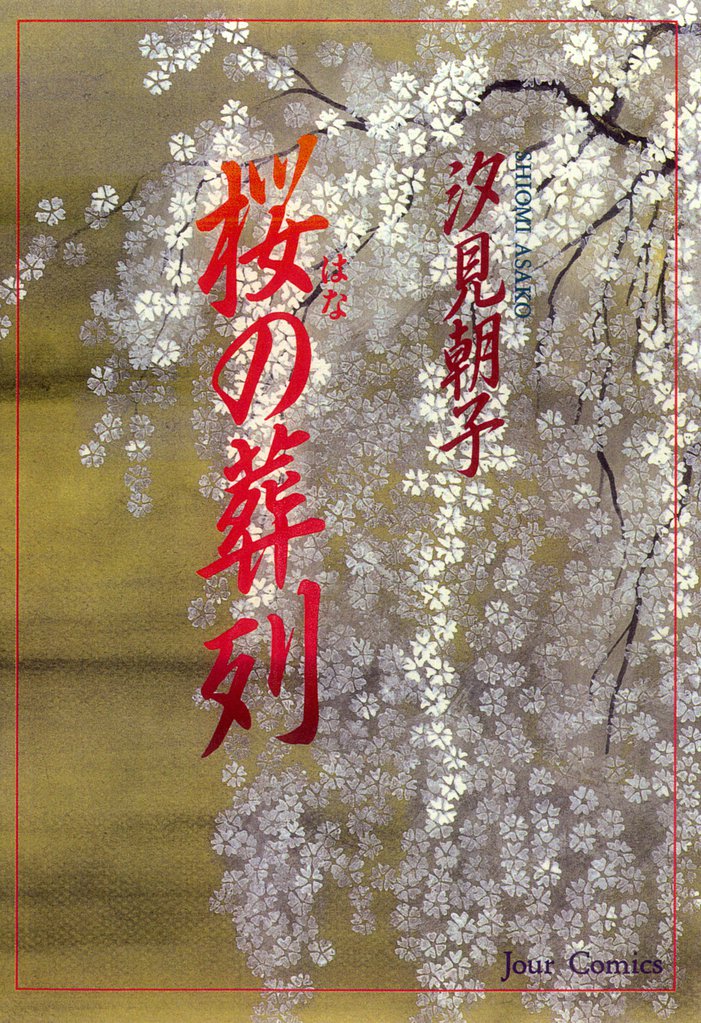 汐見朝子
SHIOMI ASAKO
桜の葬列
はな
Jour Comics